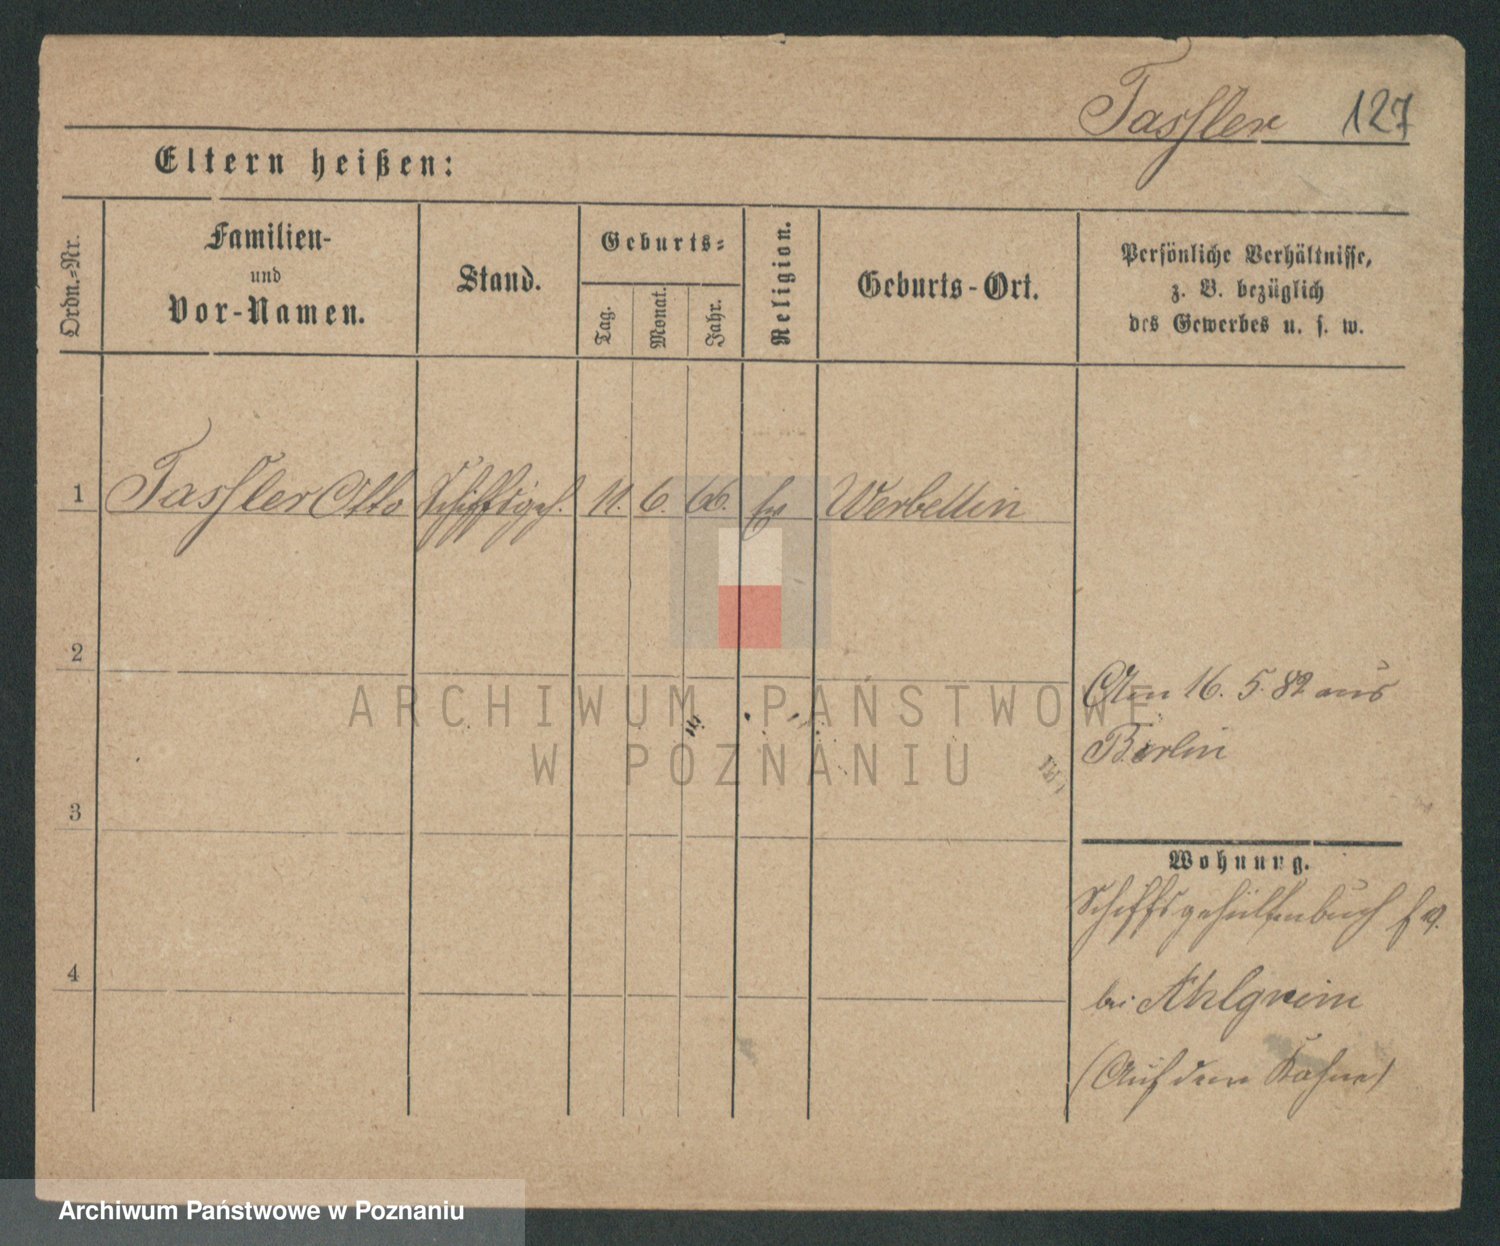 Tassler 127
Eltern heißen:
Ordn.-Nr.
Familien-
und
Vor-Namen.
Stand.
Geburts-
Tag.
Monat.
Jahr.
Religion.
Geburts-Ort.
Persönliche Verhältnisse,
z. B. bezüglich
des Gewerbes u. s. w.
1 Tassler Otto Schiffsgeh. 11. 6. 66. ev Werbellin
2
Am 16. 5. 82 aus
Berlin
3
Wohnung.
Schiffsgehülfenbuch
4
bei Ahlgrim
(Auf dem Kahne)
ARCHIWUM PAŃSTWOWE
W POZNANIU
Archiwum Państwowe w Poznaniu